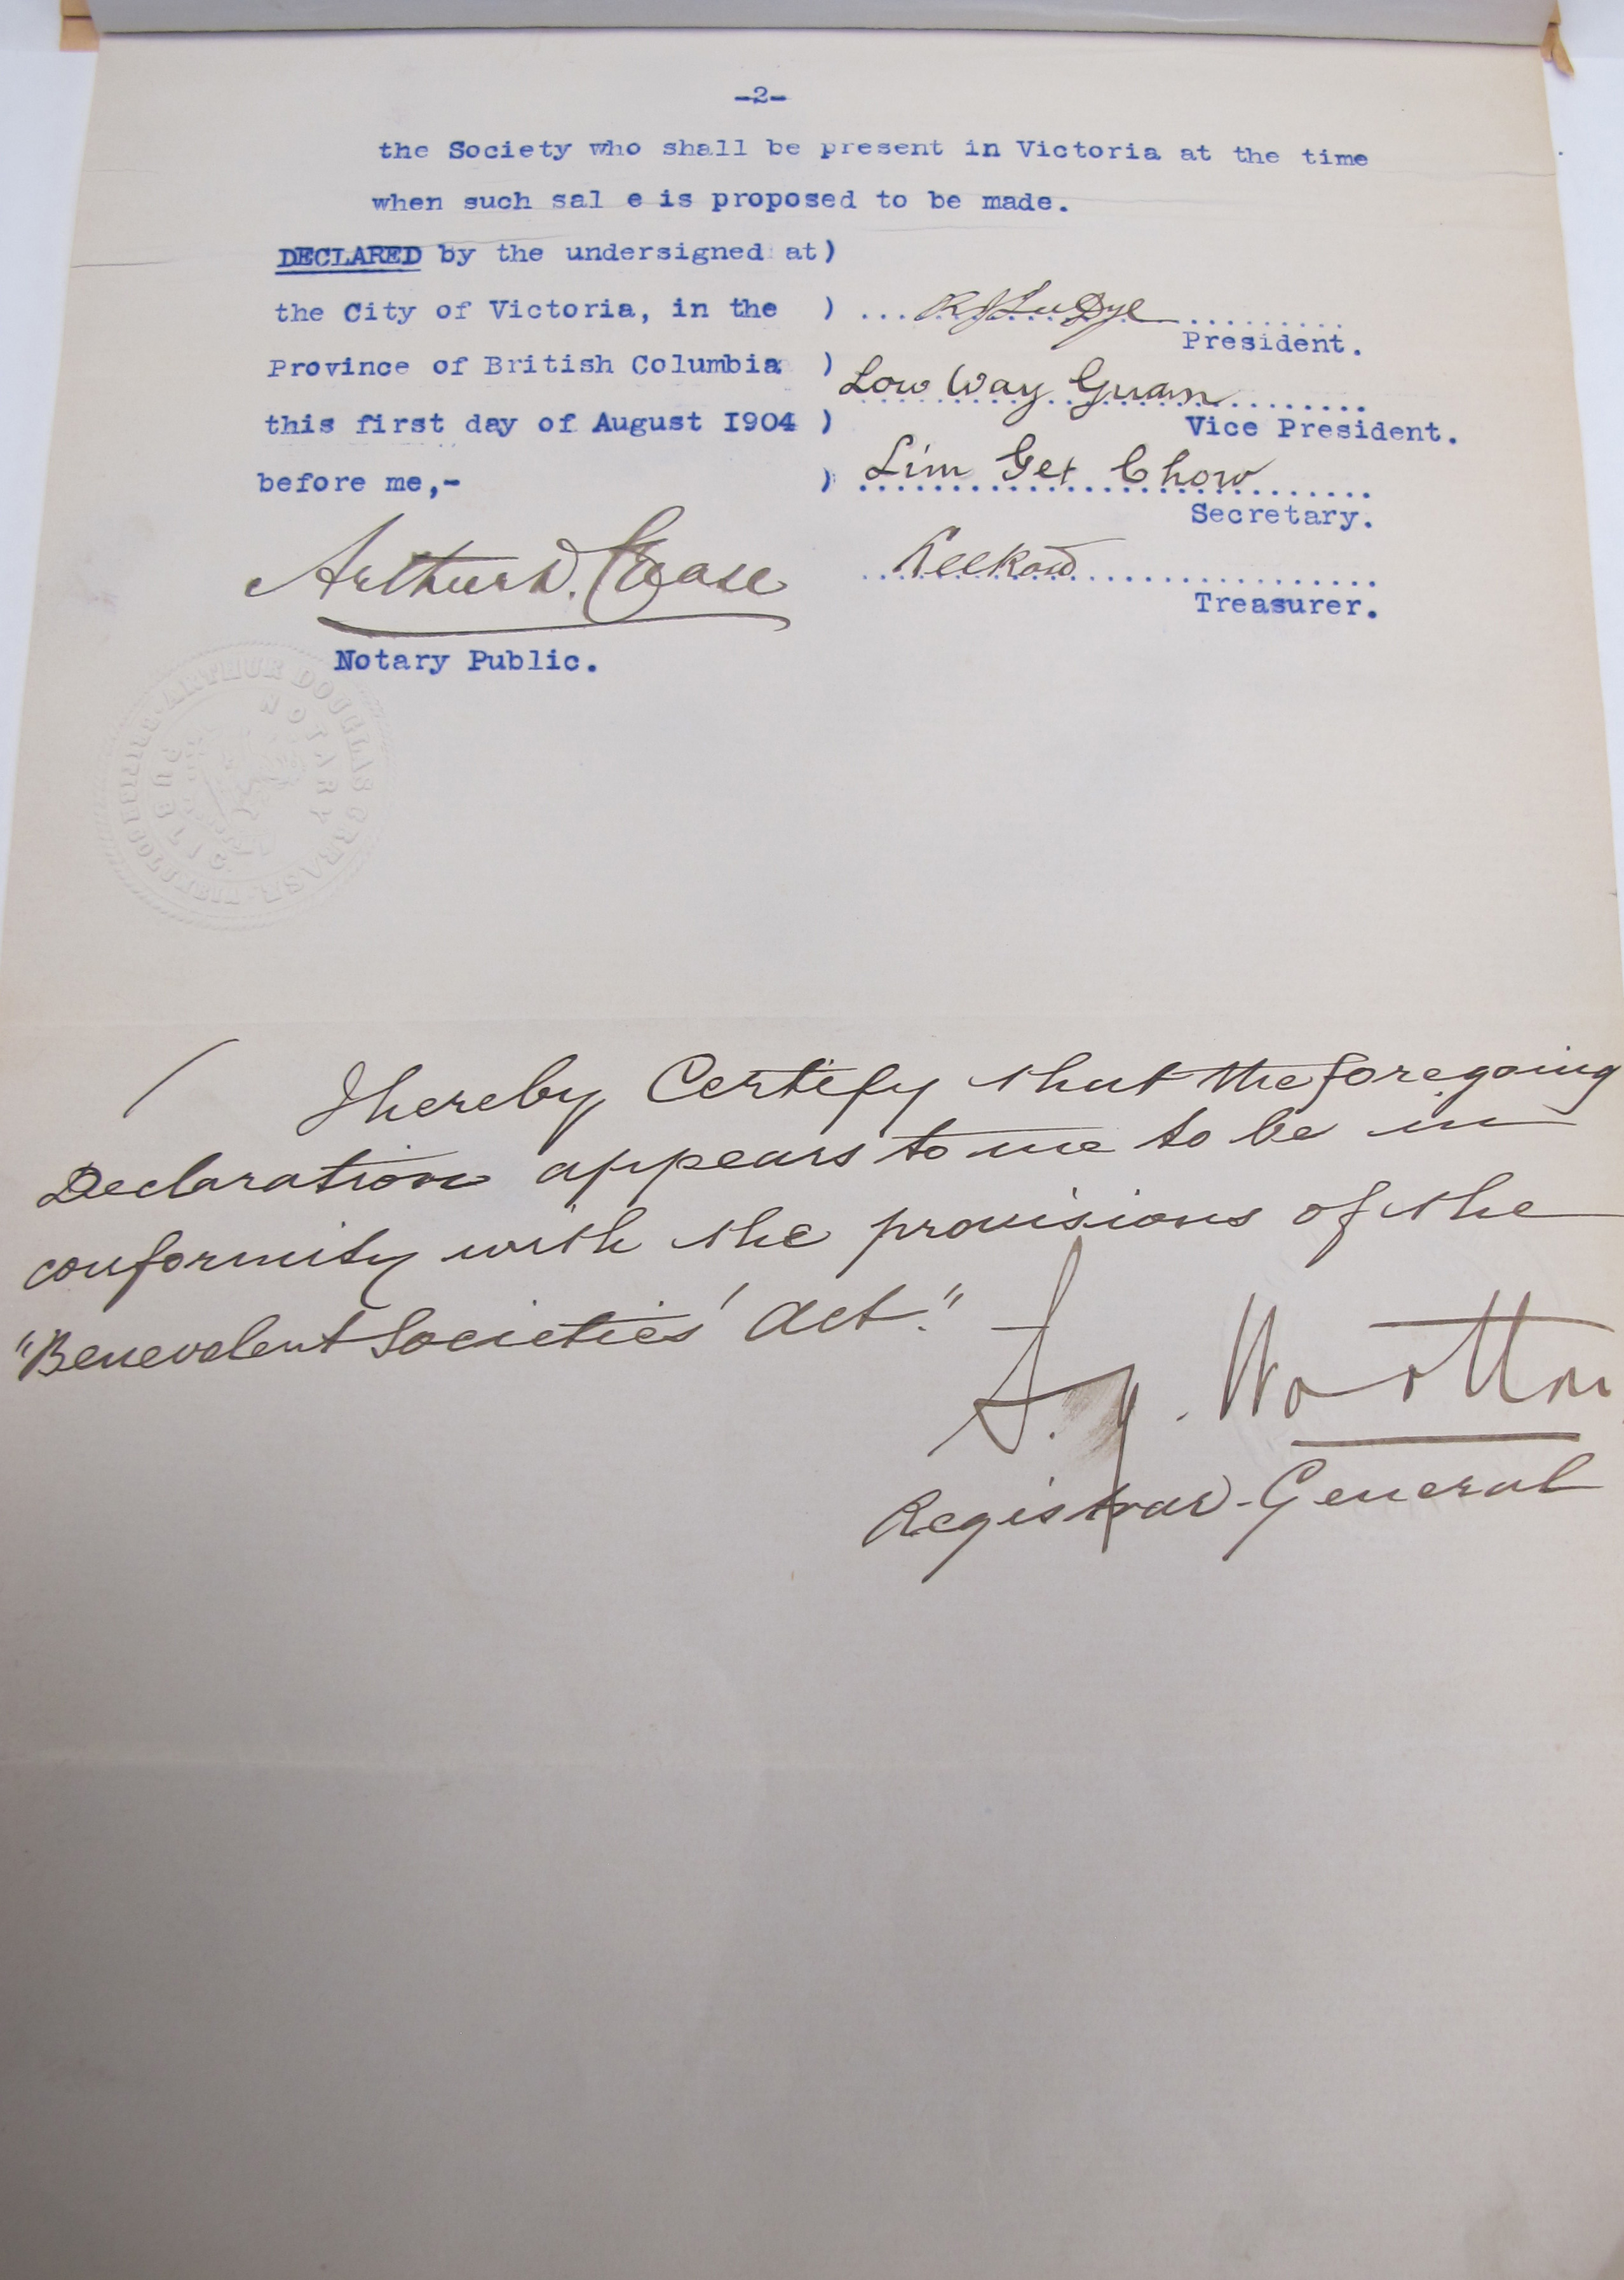 -2-
the Society who shall be present in Victoria at the time
when such sal e is proposed to be made.
DECLARED by the undersigned at)
the City of Victoria, in the )
President.
Province of British Columbia )
Low Way Guan
this first day of August 1904 )
Vice President.
before me,- )
Lim Get Chow
Secretary.
Arthur D. Crease
Notary Public.
Lee Kow
Treasurer.
ARTHUR DOUGLAS CREASE
NOTARY PUBLIC
I hereby Certify that the foregoing
Declaration appears to me to be in
conformity with the provisions of the
"Benevolent Societies' Act."
S. Y. Wootton
Registrar-General